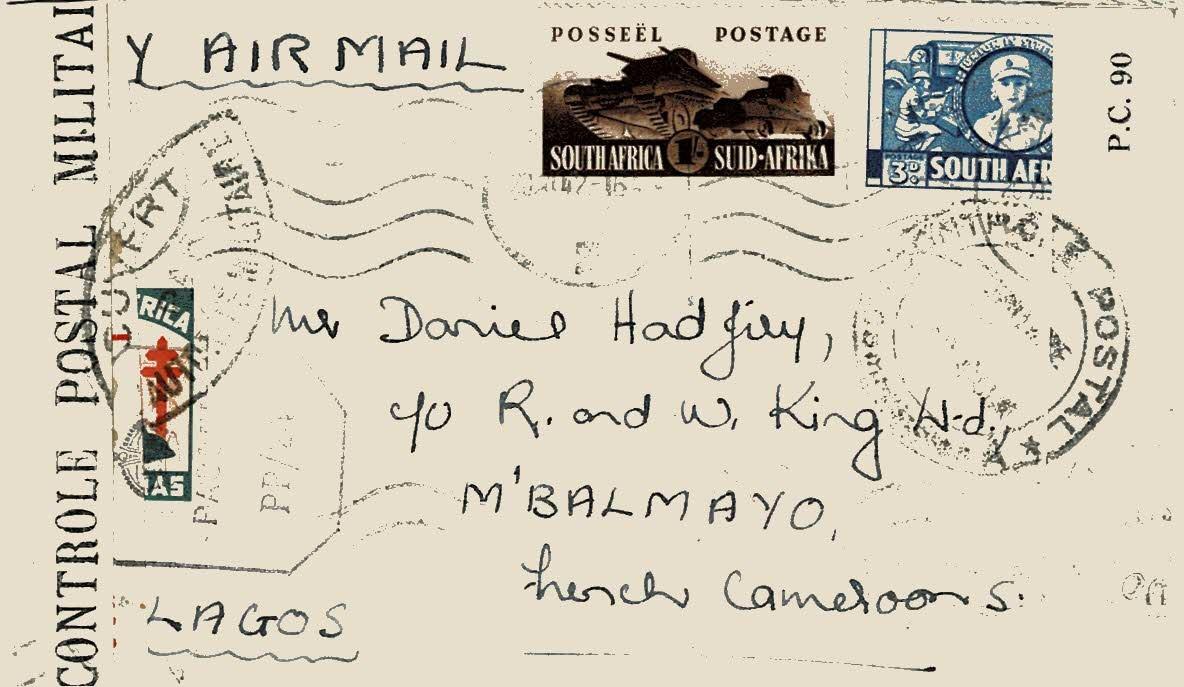 CONTROLE POSTAL MILITAI
Y AIR MAIL
POSSEËL POSTAGE
SOUTH AFRICA 1/- SUID-AFRIKA
POSTAGE
3D. SOUTH AFR
P.C. 90
OUVERT
POSTAL
RICA
AS
Mr Daniel Hadfily,
c/o R. and W. King Ltd.,
M'BALMAYO,
French Cameroons.
LAGOS